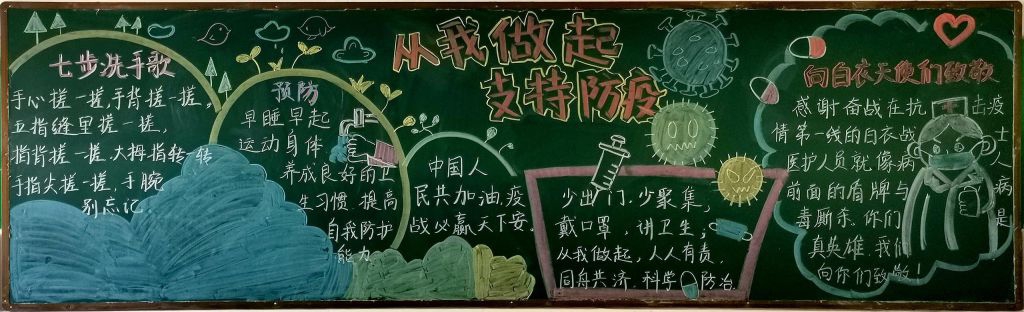 七步洗手歌
手心搓一搓,手背搓一搓,
五指缝里搓一搓,
指背搓一搓.大拇指转一转
手指尖搓一搓,手腕
别忘记.
预防
早睡早起
运动身体
养成良好的卫
生习惯 提高
自我防护
能力
从我做起
支持防疫
中国人
民共加油,疫
战必赢天下安.
少出门.少聚集,
戴口罩,讲卫生;
从我做起,人人有责,
同舟共济.科学防治.
向白衣天使们致敬
感谢奋战在抗击疫
情第一线的白衣战士
医护人员就像病人
前面的盾牌与病
毒厮杀.你们是
真英雄.我们
向你们致敬!